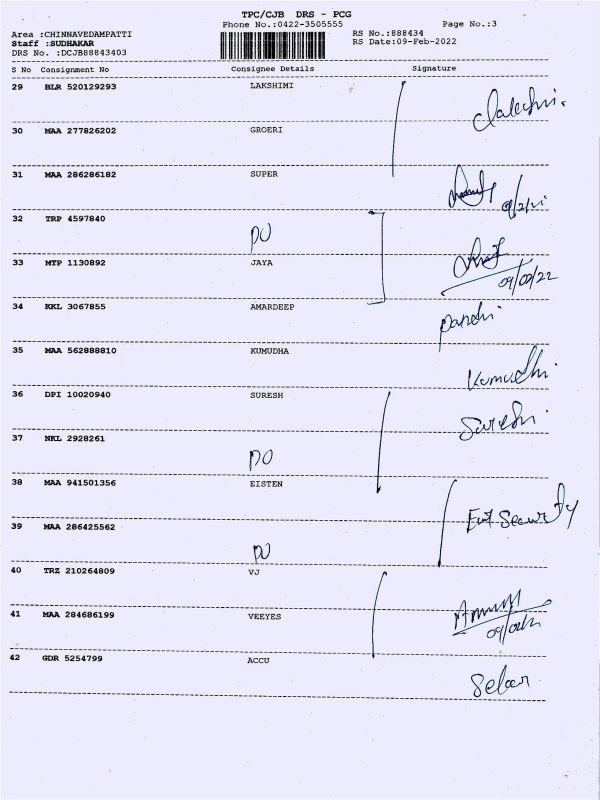 TPC/CJB DRS - PCG
Phone No.:0422-3505555 Page No.:3
Area :CHINNAVEDAMPATTI RS No.:888434
Staff :SUDHAKAR RS Date:09-Feb-2022
DRS No. :DCJB88843403
S No Consignment No Consignee Details Signature
29 BLR 520129293 LAKSHIMI
30 MAA 277826202 GROERI
31 MAA 286286182 SUPER
32 TRP 4597840
33 MTP 1130892 JAYA
09/02/22
34 KKL 3067855 AMARDEEP
35 MAA 562888810 KUMUDHA
Kumudhi
36 DPI 10020940 SURESH
Sureshi
37 NKL 2928261
38 MAA 941501356 EISTEN
Security
39 MAA 286425562
40 TRZ 210264809 VJ
41 MAA 284686199 VEEYES
42 GDR 5254799 ACCU